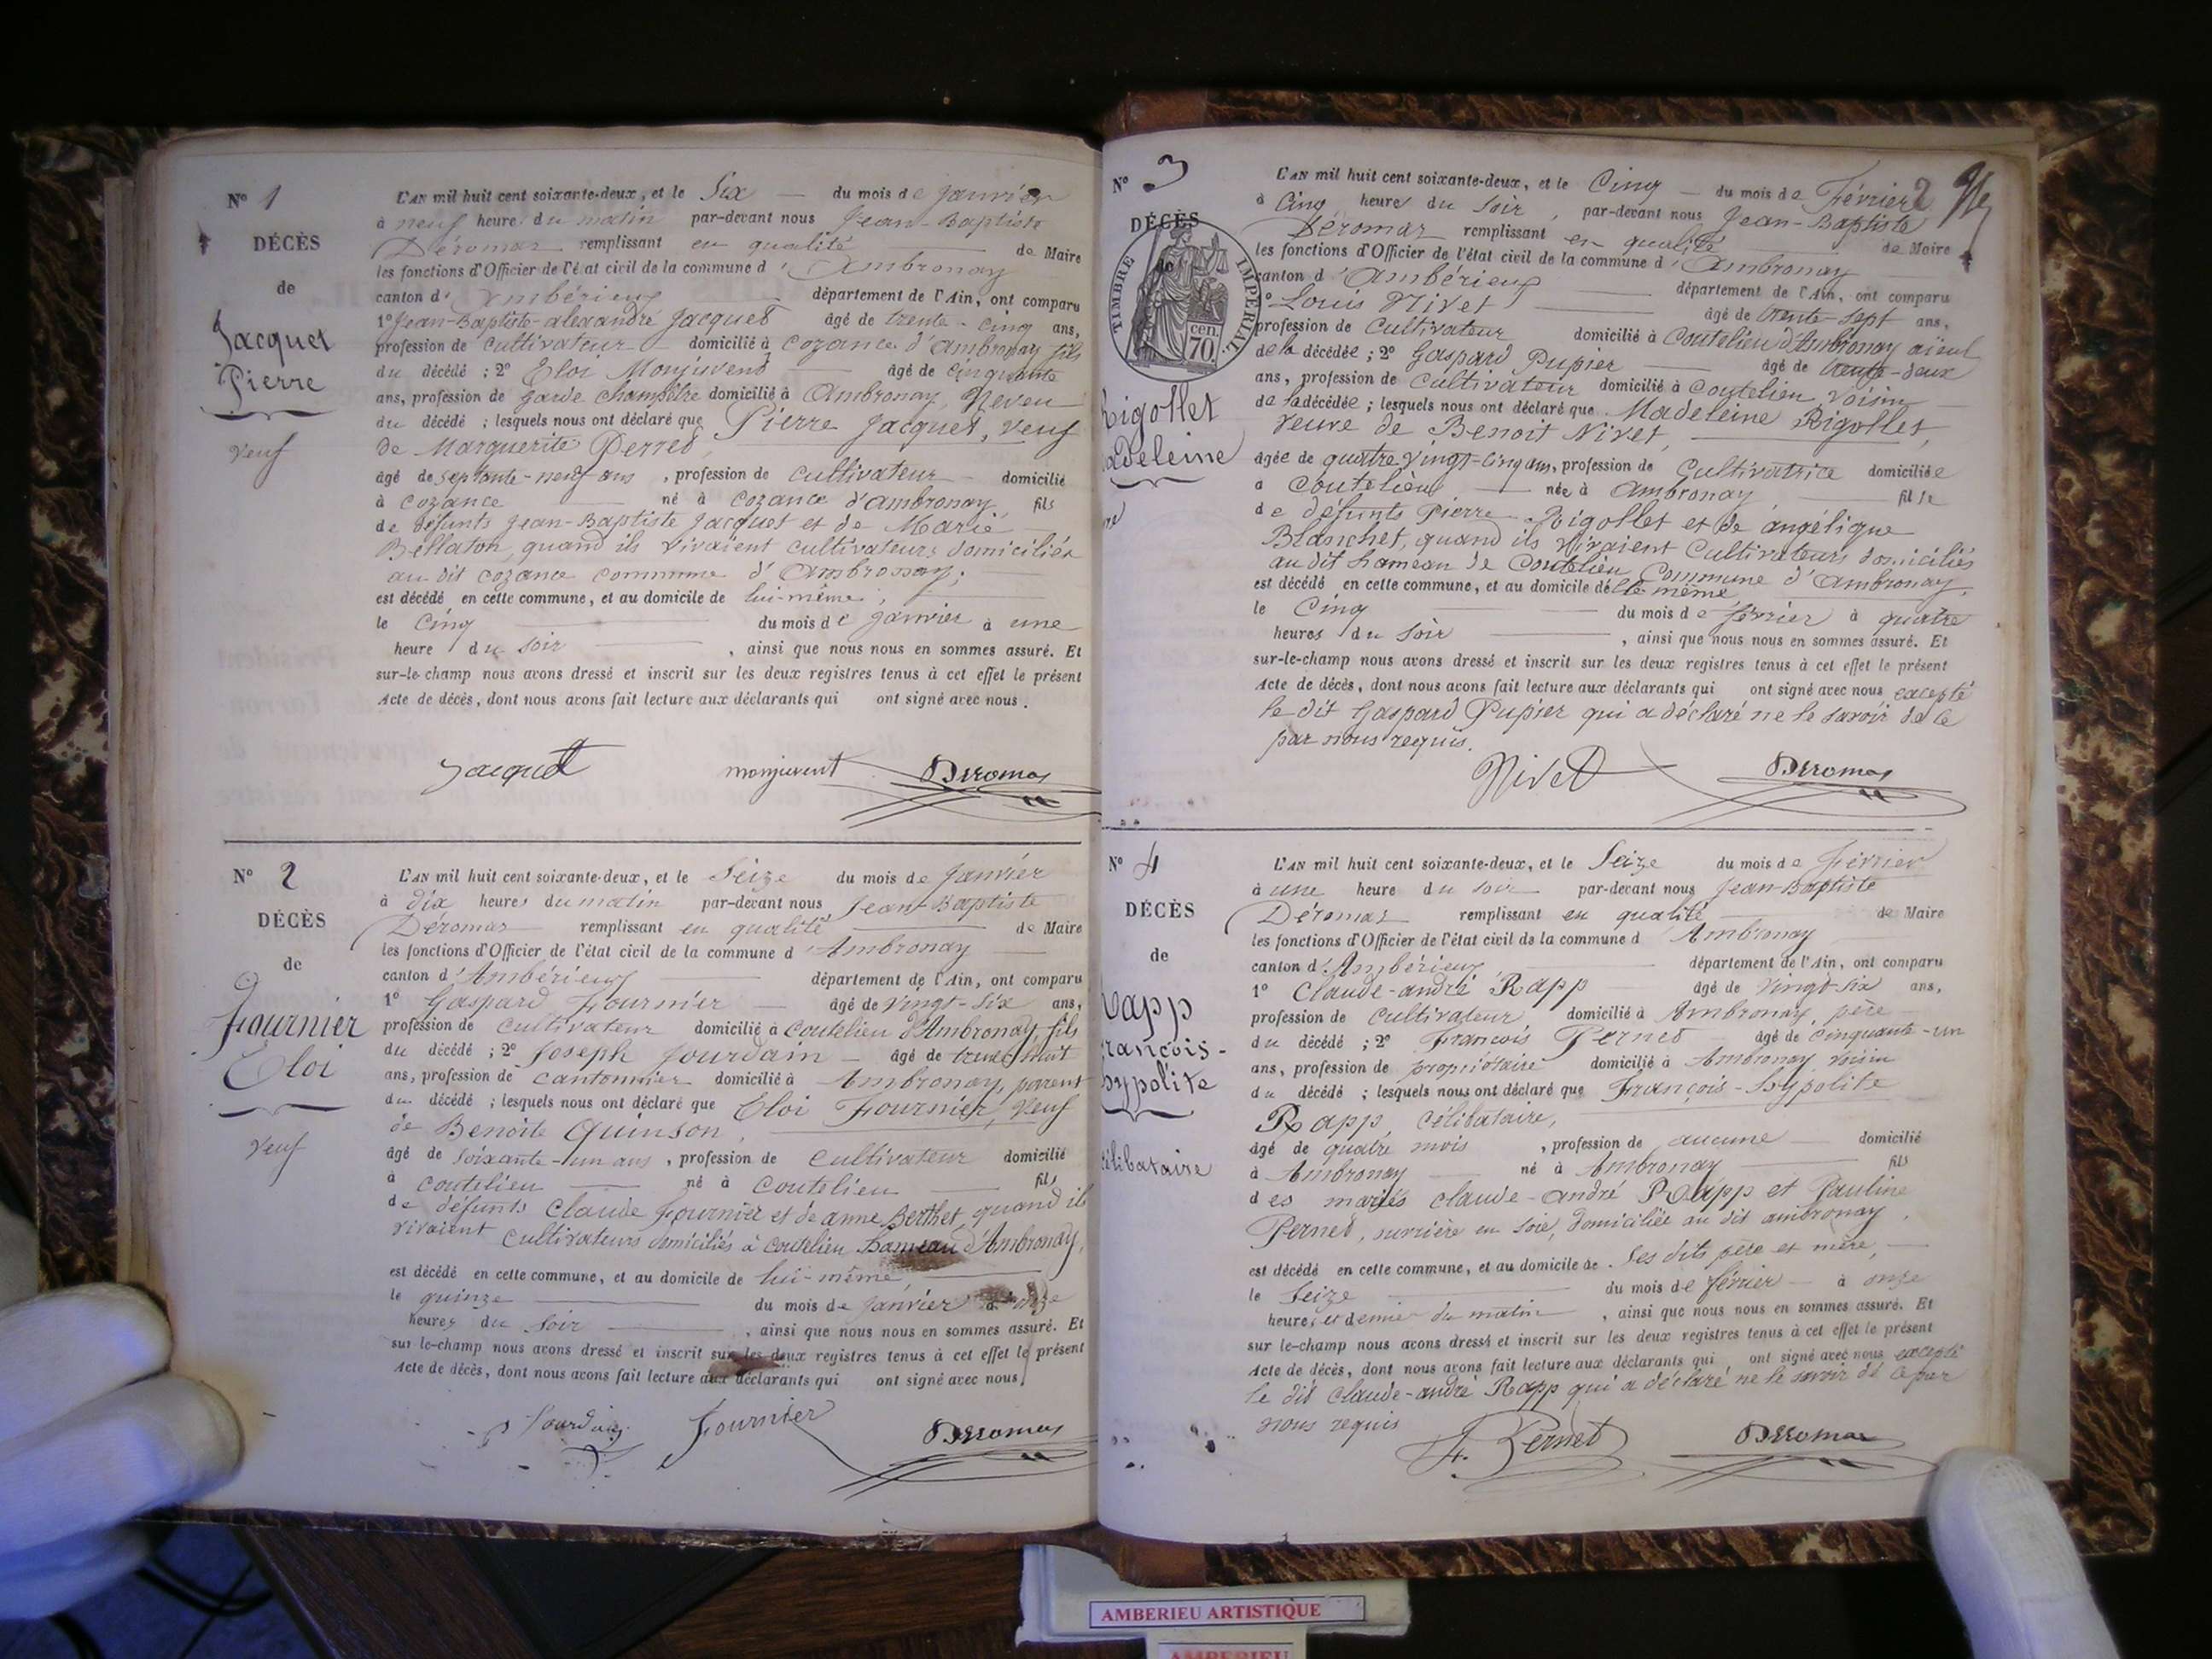 Nº 1
DÉCÈS
de
Jacquet
Pierre
Veuf
L'AN mil huit cent soixante-deux, et le Six du mois de Janvier
à neuf heures du matin par-devant nous Jean-Baptiste
Déromas remplissant en qualité de Maire
les fonctions d'Officier de l'état civil de la commune d'Ambronay
canton d'Ambérieux département de l'Ain, ont comparu
1º Jean-Baptiste-alexandre Jacquet âgé de trente-cinq ans,
profession de Cultivateur domicilié à Cozance d'Ambronay fils
du décédé ; 2º Eloi Monjuvent âgé de Cinquante
ans, profession de garde champêtre domicilié à Ambronay, Neveu
du décédé ; lesquels nous ont déclaré que Pierre Jacquet, veuf
de Marguerite Perret,
âgé de septante-neuf ans , profession de Cultivateur domicilié
à Cozance né à Cozance d'ambronay fils
de défunts Jean-Baptiste Jacquet et de Marie
Bellaton, quand ils vivaient cultivateurs domiciliés
au dit cozance commune d'Ambronay;
est décédé en cette commune, et au domicile de lui-même,
le Cinq du mois de Janvier à une
heure du soir , ainsi que nous nous en sommes assuré. Et
sur-le-champ nous avons dressé et inscrit sur les deux registres tenus à cet effet le présent
Acte de décès, dont nous avons fait lecture aux déclarants qui ont signé avec nous.
Jacquet monjuvent Déromas
Nº 2
DÉCÈS
de
Fournier
Eloi
Veuf
L'AN mil huit cent soixante-deux, et le Seize du mois de Janvier
à dix heures du matin par-devant nous Jean-Baptiste
Déromas remplissant en qualité de Maire
les fonctions d'Officier de l'état civil de la commune d'Ambronay
canton d'Ambérieux département de l'Ain, ont comparu
1º Gaspard Fournier âgé de vingt-six ans,
profession de Cultivateur domicilié à Coutelieu d'Ambronay, fils
du décédé ; 2º Joseph Jourdain âgé de trente huit
ans, profession de cantonnier domicilié à Ambronay, parent
du décédé ; lesquels nous ont déclaré que Eloi Fournier, Veuf
de Benoite Quinson,
âgé de soixante-un ans , profession de Cultivateur domicilié
à Coutelieu né à Coutelieu fils
de défunts Claude Fournier et de anne Berthet, quand ils
vivaient Cultivateurs domiciliés à Coutelieu hameau d'Ambronay,
est décédé en cette commune, et au domicile de lui-même,
le quinze du mois de Janvier à onze
heures du soir , ainsi que nous nous en sommes assuré. Et
sur-le-champ nous avons dressé et inscrit sur les deux registres tenus à cet effet le présent
Acte de décès, dont nous avons fait lecture aux déclarants qui ont signé avec nous.
Jourdain Fournier Déromas
Nº 3
DÉCÈS
de
TIMBRE IMPÉRIAL
70 cen.
Rigollet
adeleine
L'AN mil huit cent soixante-deux, et le Cinq du mois de Février 2
à Cinq heures du soir , par-devant nous Jean-Baptiste
Déromas remplissant en qualité de Maire
les fonctions d'Officier de l'état civil de la commune d'Ambronay
canton d'Ambérieux département de l'Ain, ont comparu
1º Louis Nivet âgé de trente-sept ans,
profession de Cultivateur domicilié à Coutelieu d'Ambronay aïeul
de la décédée ; 2º Gaspard Pupier âgé de trente-deux
ans, profession de Cultivateur domicilié à Coutelieu, voisin
de la décédée ; lesquels nous ont déclaré que Madeleine Rigollet,
veuve de Benoit Nivet,
âgée de quatre vingt-cinq ans, profession de Cultivatrice domiciliée
à Coutelieu née à Ambronay fille
de défunts Pierre Rigollet et de angélique
Blanchet, quand ils vivaient Cultivateurs domiciliés
au dit hameau de Coutelieu, Commune d'Ambronay,
est décédé en cette commune, et au domicile d'elle même
le Cinq du mois de février à quatre
heures du soir , ainsi que nous nous en sommes assuré. Et
sur-le-champ nous avons dressé et inscrit sur les deux registres tenus à cet effet le présent
Acte de décès, dont nous avons fait lecture aux déclarants qui ont signé avec nous excepté
le dit Gaspard Pupier qui a déclaré ne le savoir de ce
par nous requis.
Nivet Déromas
Nº 4
DÉCÈS
de
Rapp
rançois-
hypolite
célibataire
L'AN mil huit cent soixante-deux, et le Seize du mois de Février
à une heure du soir par-devant nous Jean-Baptiste
Déromas remplissant en qualité de Maire
les fonctions d'Officier de l'état civil de la commune d Ambronay
canton d'Ambérieux département de l'Ain, ont comparu
1º Claude-andré Rapp âgé de vingt-six ans,
profession de Cultivateur domicilié à Ambronay, père
du décédé ; 2º François Pernet âgé de cinquante-un
ans, profession de propriétaire domicilié à Ambronay voisin
du décédé ; lesquels nous ont déclaré que François-hypolite
Rapp, célibataire,
âgé de quatre mois , profession de aucune domicilié
à Ambronay né à Ambronay fils
des mariés Claude-andré Rapp et Pauline
Pernet, ouvrière en soie, domiciliée au dit ambronay,
est décédé en cette commune, et au domicile de ses dits père et mère,
le Seize du mois de février à onze
heures et demie du matin , ainsi que nous nous en sommes assuré. Et
sur le-champ nous avons dressé et inscrit sur les deux registres tenus à cet effet le présent
Acte de décès, dont nous avons fait lecture aux déclarants qui, ont signé avec nous excepté
le dit Claude-andré Rapp qui a déclaré ne le savoir de ce par
nous requis
F. Pernet Déromas
AMBERIEU ARTISTIQUE
AMBERIEU